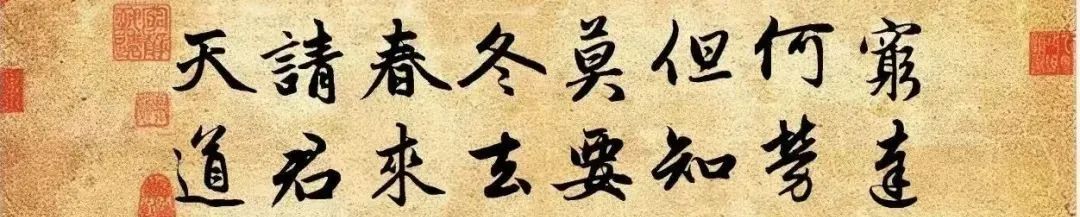 窮達
何勞
但知
莫要
冬去
春來
請君
天道